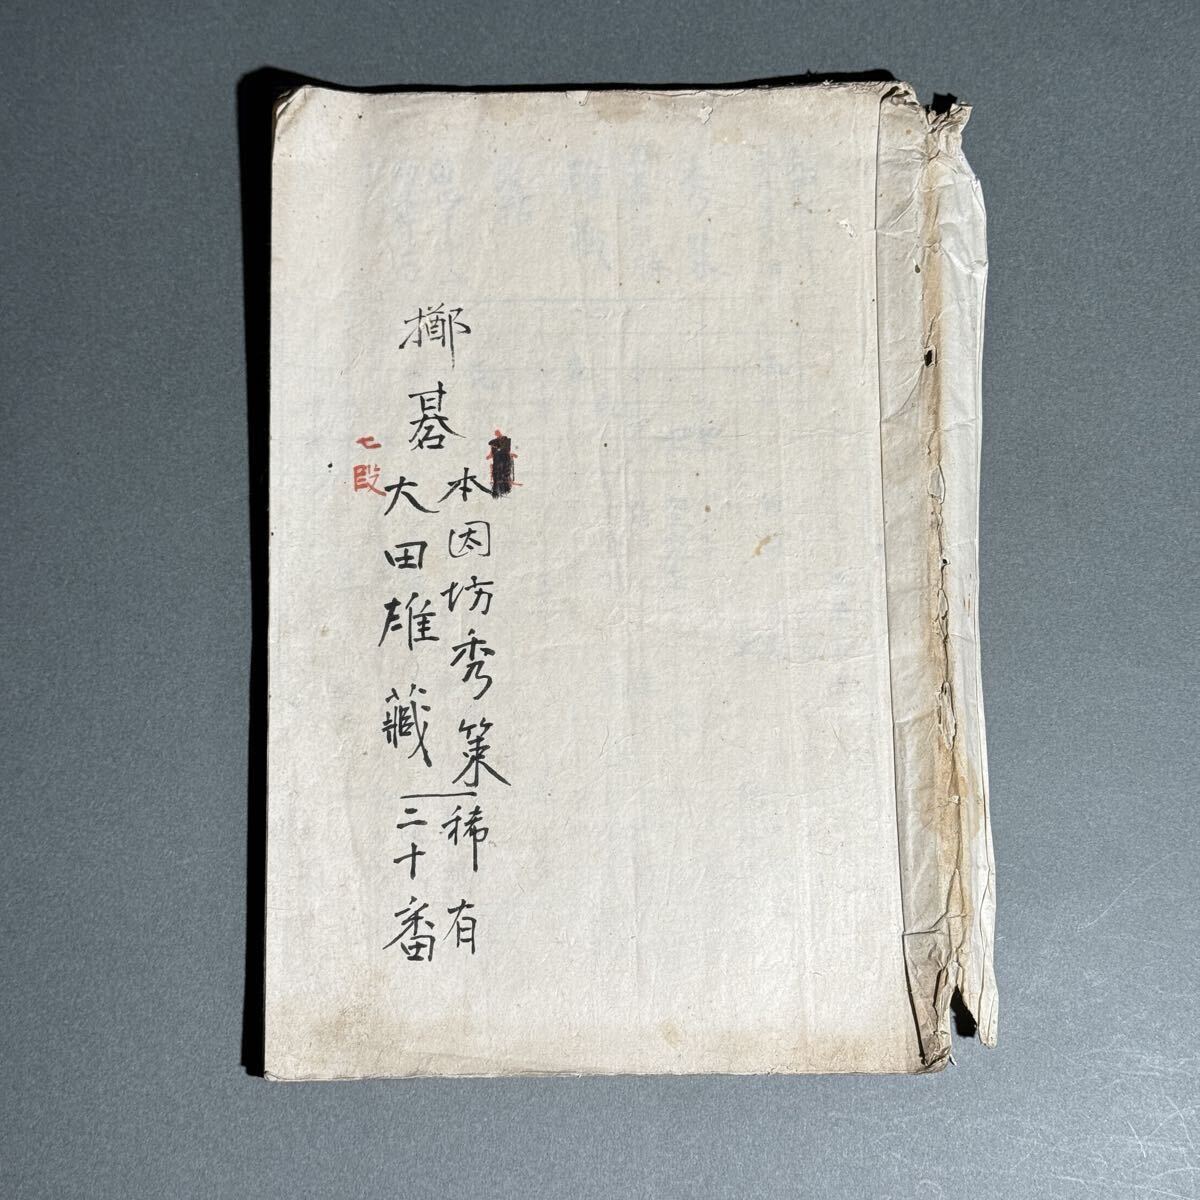 擲碁
本因坊秀策
大田雄蔵
七段
稀有
二十番